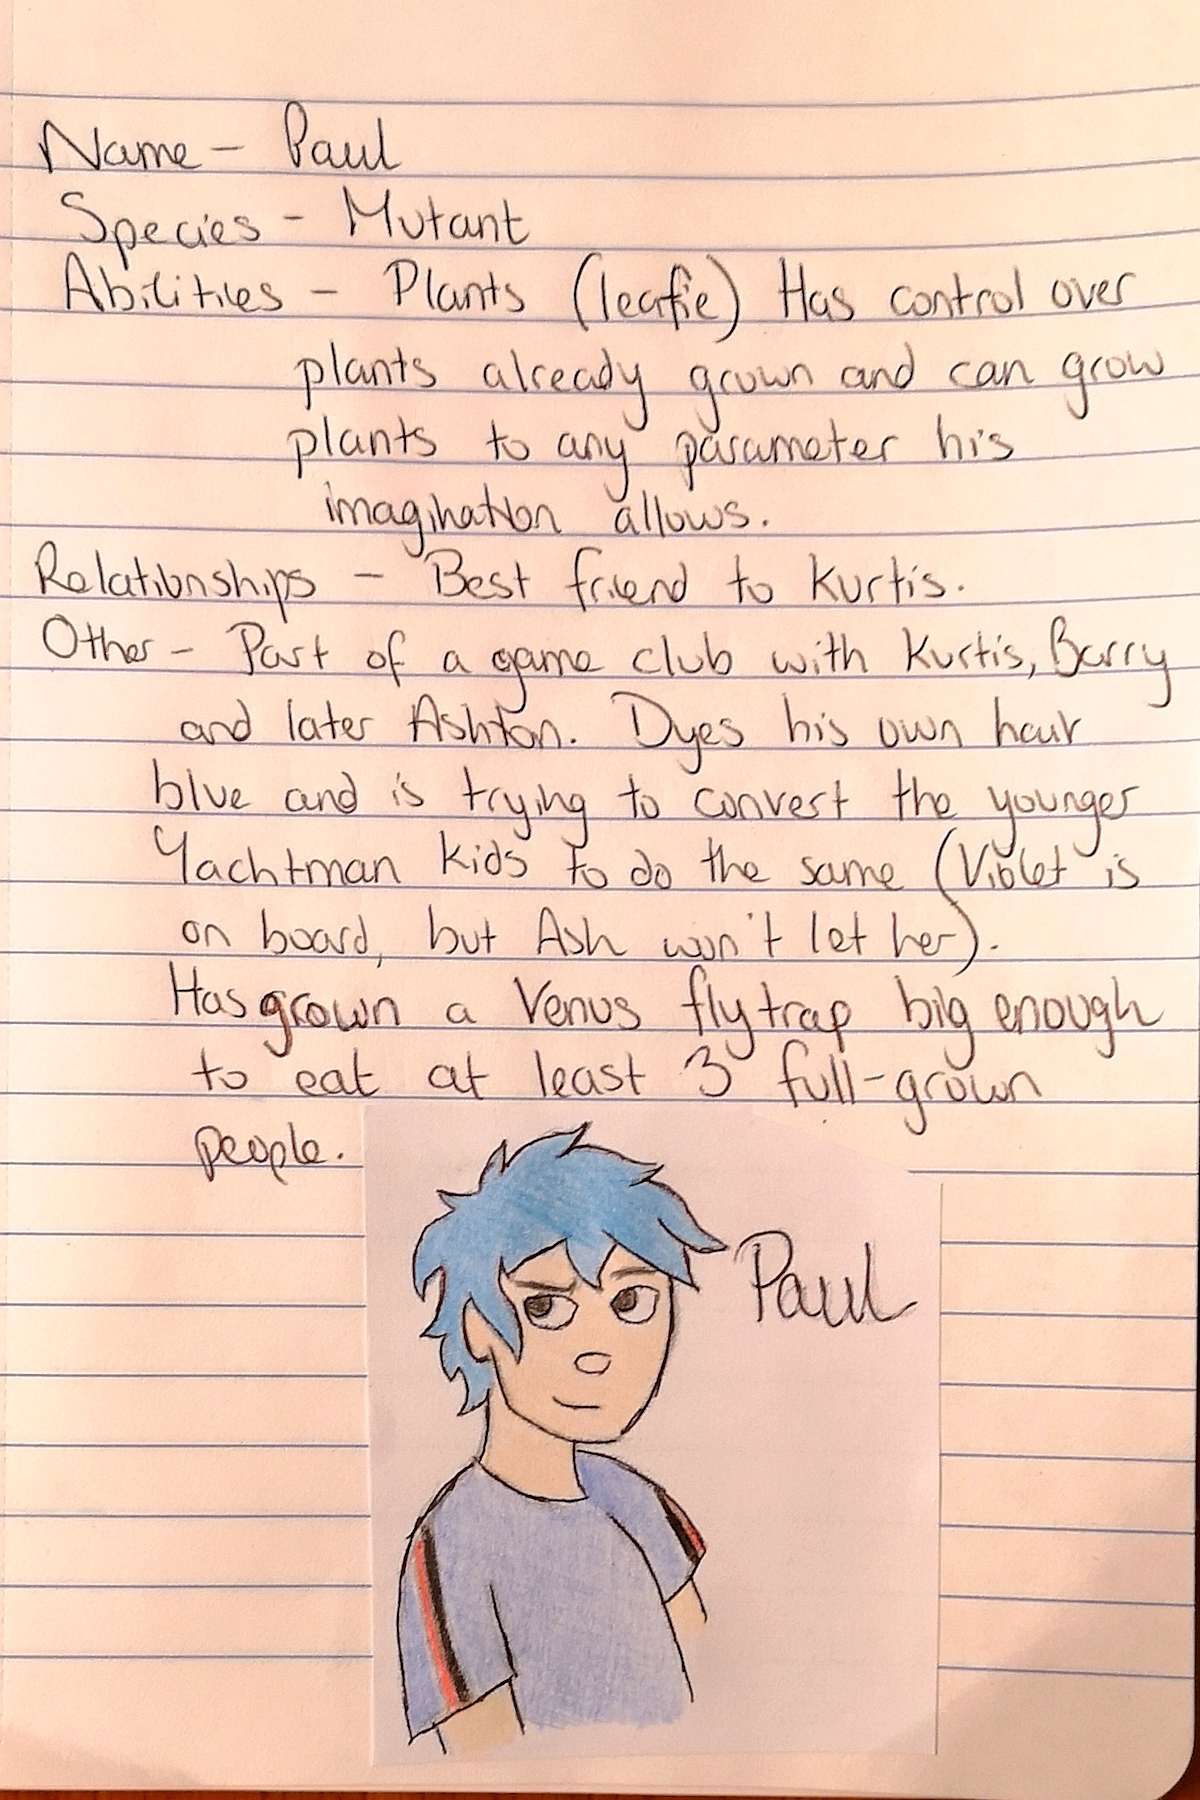 Name - Paul
Species - Mutant
Abilities - Plants (leafie) Has control over
plants already grown and can grow
plants to any parameter his
imagination allows.
Relationships - Best friend to Kurtis.
Other - Part of a game club with Kurtis, Barry
and later Ashton. Dyes his own hair
blue and is trying to convert the younger
Yachtman kids to do the same (Violet is
on board, but Ash won't let her).
Has grown a Venus flytrap big enough
to eat at least 3 full-grown
people.
Paul